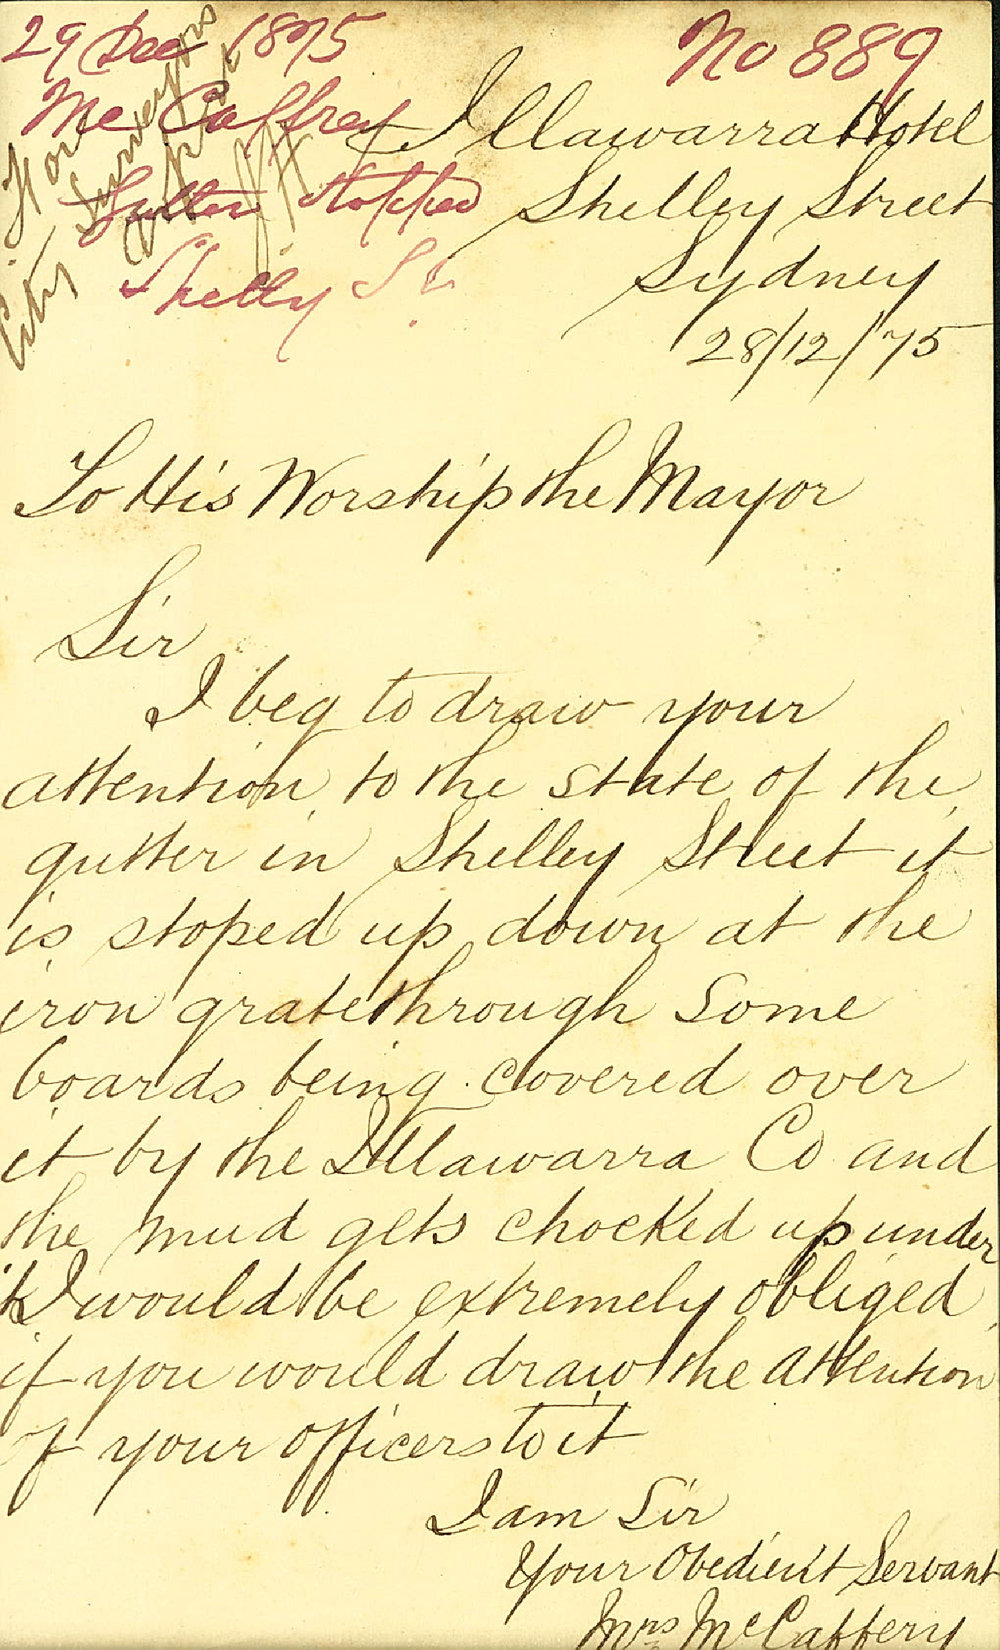 29 Dec 1875
No 889
Mc Caffrey
Gutter stopped
Shelly St.
For
City Surveyors
report
Illawarra Hotel
Shelley Street
Sydney
28/12/75
To His Worship the Mayor
Sir
I beg to draw your
attention to the state of the
gutter in Shelley Street it
is stoped up down at the
iron grate through Some
boards being covered over
it by the Illawarra Co and
the mud gets chocked up under
it I would be extremely obliged
if you would draw the attention
of your officers to it
I am Sir
Your Obedient Servant
Mrs McCaffery